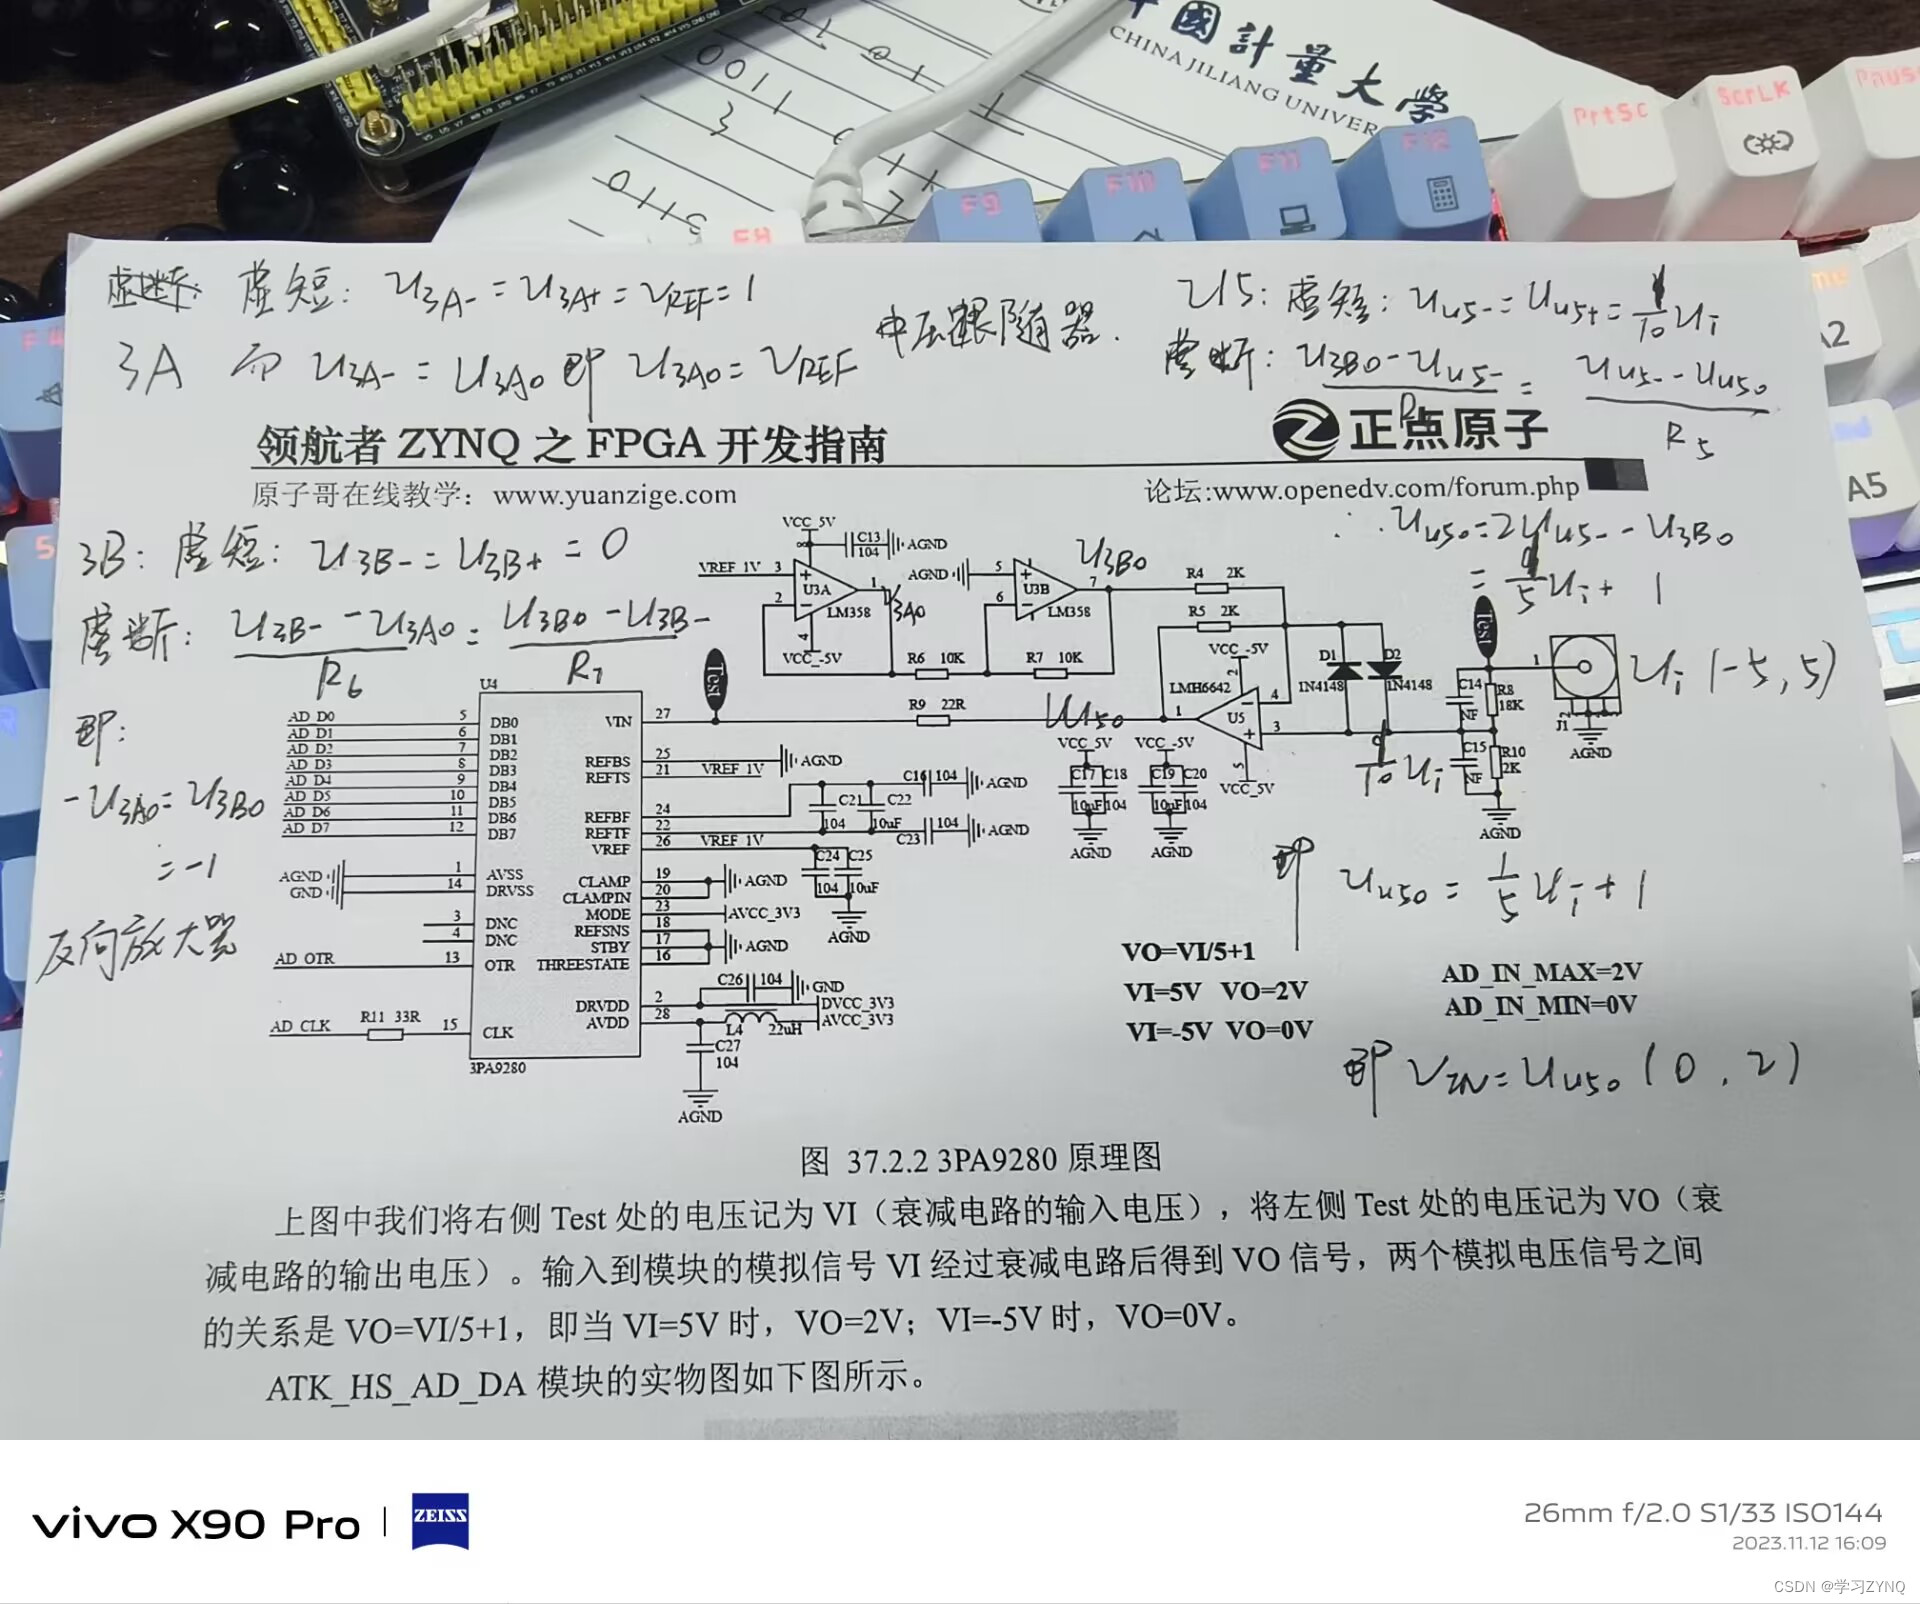 中國計量大學
CHINA JILIANG UNIVER
0011
3
0110
F9
F10
F11
F12
PrtSc
ScrLK
Paus
F4
A2
A5
5
虚短: U3A- = U3A+ = VREF = 1
3A 而 U3A- = U3AO 即 U3AO = VREF
电压跟随器.
U5: 虚短: Uu5- = Uu5+ = 1/10 Ui
虚断: (U3BO - Uu5-)/R = (Uu5- - Uu5o)/R5
领航者 ZYNQ 之 FPGA 开发指南
正点原子
原子哥在线教学：www.yuanzige.com
论坛:www.openedv.com/forum.php
∴ Uu5o = 2Uu5- - U3BO
= 1/5 Ui + 1
3B: 虚短: U3B- = U3B+ = 0
虚断: (U3B- - U3AO)/R6 = (U3BO - U3B-)/R7
即:
-U3AO = U3BO
= -1
反向放大器
VCC_5V
C13
104
AGND
VREF_1V 3
2
U3A
1
LM358
4
VCC_-5V
U3AO
AGND
5
6
U3B
7
LM358
U3BO
R4 2K
R5 2K
R6 10K
R7 10K
VCC_-5V
2
LMH6642
4
1
U5
3
5
VCC_5V
D1
1N4148
D2
1N4148
Test
Test
C14
NF
R8
18K
C15
NF
R10
2K
AGND
1
J1
AGND
Ui (-5, 5)
1/10 Ui
R9 22R
Uu5o
VCC_5V VCC_-5V
C17 C18
10uF 104
AGND
C19 C20
10uF 104
AGND
U4
AD_D0 5 DB0
AD_D1 6 DB1
AD_D2 7 DB2
AD_D3 8 DB3
AD_D4 9 DB4
AD_D5 10 DB5
AD_D6 11 DB6
AD_D7 12 DB7
AGND 1 AVSS
GND 14 DRVSS
3 DNC
4 DNC
AD_OTR 13 OTR
AD_CLK R11 33R 15 CLK
3PA9280
VIN 27
REFBS 25 AGND
REFTS 21 VREF_1V
REFBF 24
REFTF 22
VREF 26 VREF_1V
CLAMP 19
CLAMPIN 20
AGND
MODE 23 AVCC_3V3
REFSNS 18
STBY 17
THREESTATE 16
AGND
DRVDD 2
AVDD 28
C16 104 AGND
C21
104
C22
10uF
C23 104 AGND
C24 C25
104 10uF
AGND
C26 104 GND
DVCC_3V3
AVCC_3V3
L4 22uH
C27
104
AGND
即 Uu5o = 1/5 Ui + 1
VO=VI/5+1
VI=5V VO=2V
VI=-5V VO=0V
AD_IN_MAX=2V
AD_IN_MIN=0V
即 VIN = Uu5o (0, 2)
图 37.2.2 3PA9280 原理图
上图中我们将右侧 Test 处的电压记为 VI（衰减电路的输入电压），将左侧 Test 处的电压记为 VO（衰
减电路的输出电压）。输入到模块的模拟信号 VI 经过衰减电路后得到 VO 信号，两个模拟电压信号之间
的关系是 VO=VI/5+1，即当 VI=5V 时，VO=2V；VI=-5V 时，VO=0V。
ATK_HS_AD_DA 模块的实物图如下图所示。
vivo X90 Pro
ZEISS
26mm f/2.0 S1/33 ISO144
2023.11.12 16:09
CSDN @学习ZYNQ